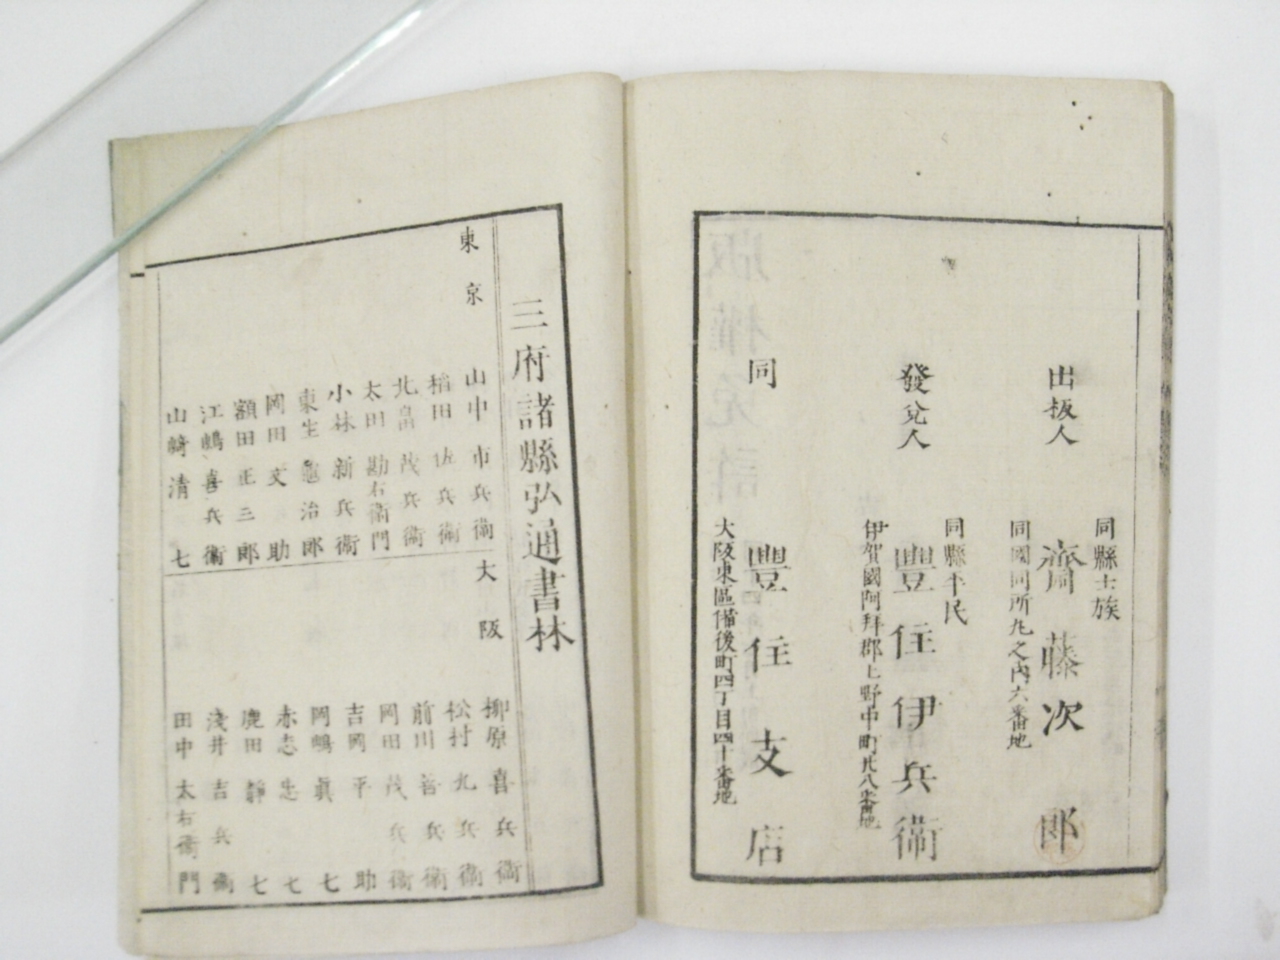 同縣士族
出板人
齋藤次郎
同國同所丸之內六番地
同縣平民
發兌人
豐住伊兵衞
伊賀國阿拜郡上野中町廿八番地
同
豐住支店
大阪東區備後町四丁目四十番地
三府諸縣弘通書林
東京
山中市兵衞
稻田佐兵衞
北畠茂兵衞
太田勘右衞門
小林新兵衞
東生龜治郎
岡田文助
額田正三郎
江嶋喜兵衞
山﨑清七
大阪
柳原喜兵衞
松村九兵衞
前川善兵衞
岡田茂兵衞
吉岡平助
岡嶋眞七
赤志忠七
鹿田靜七
淺井吉兵衞
田中太右衞門